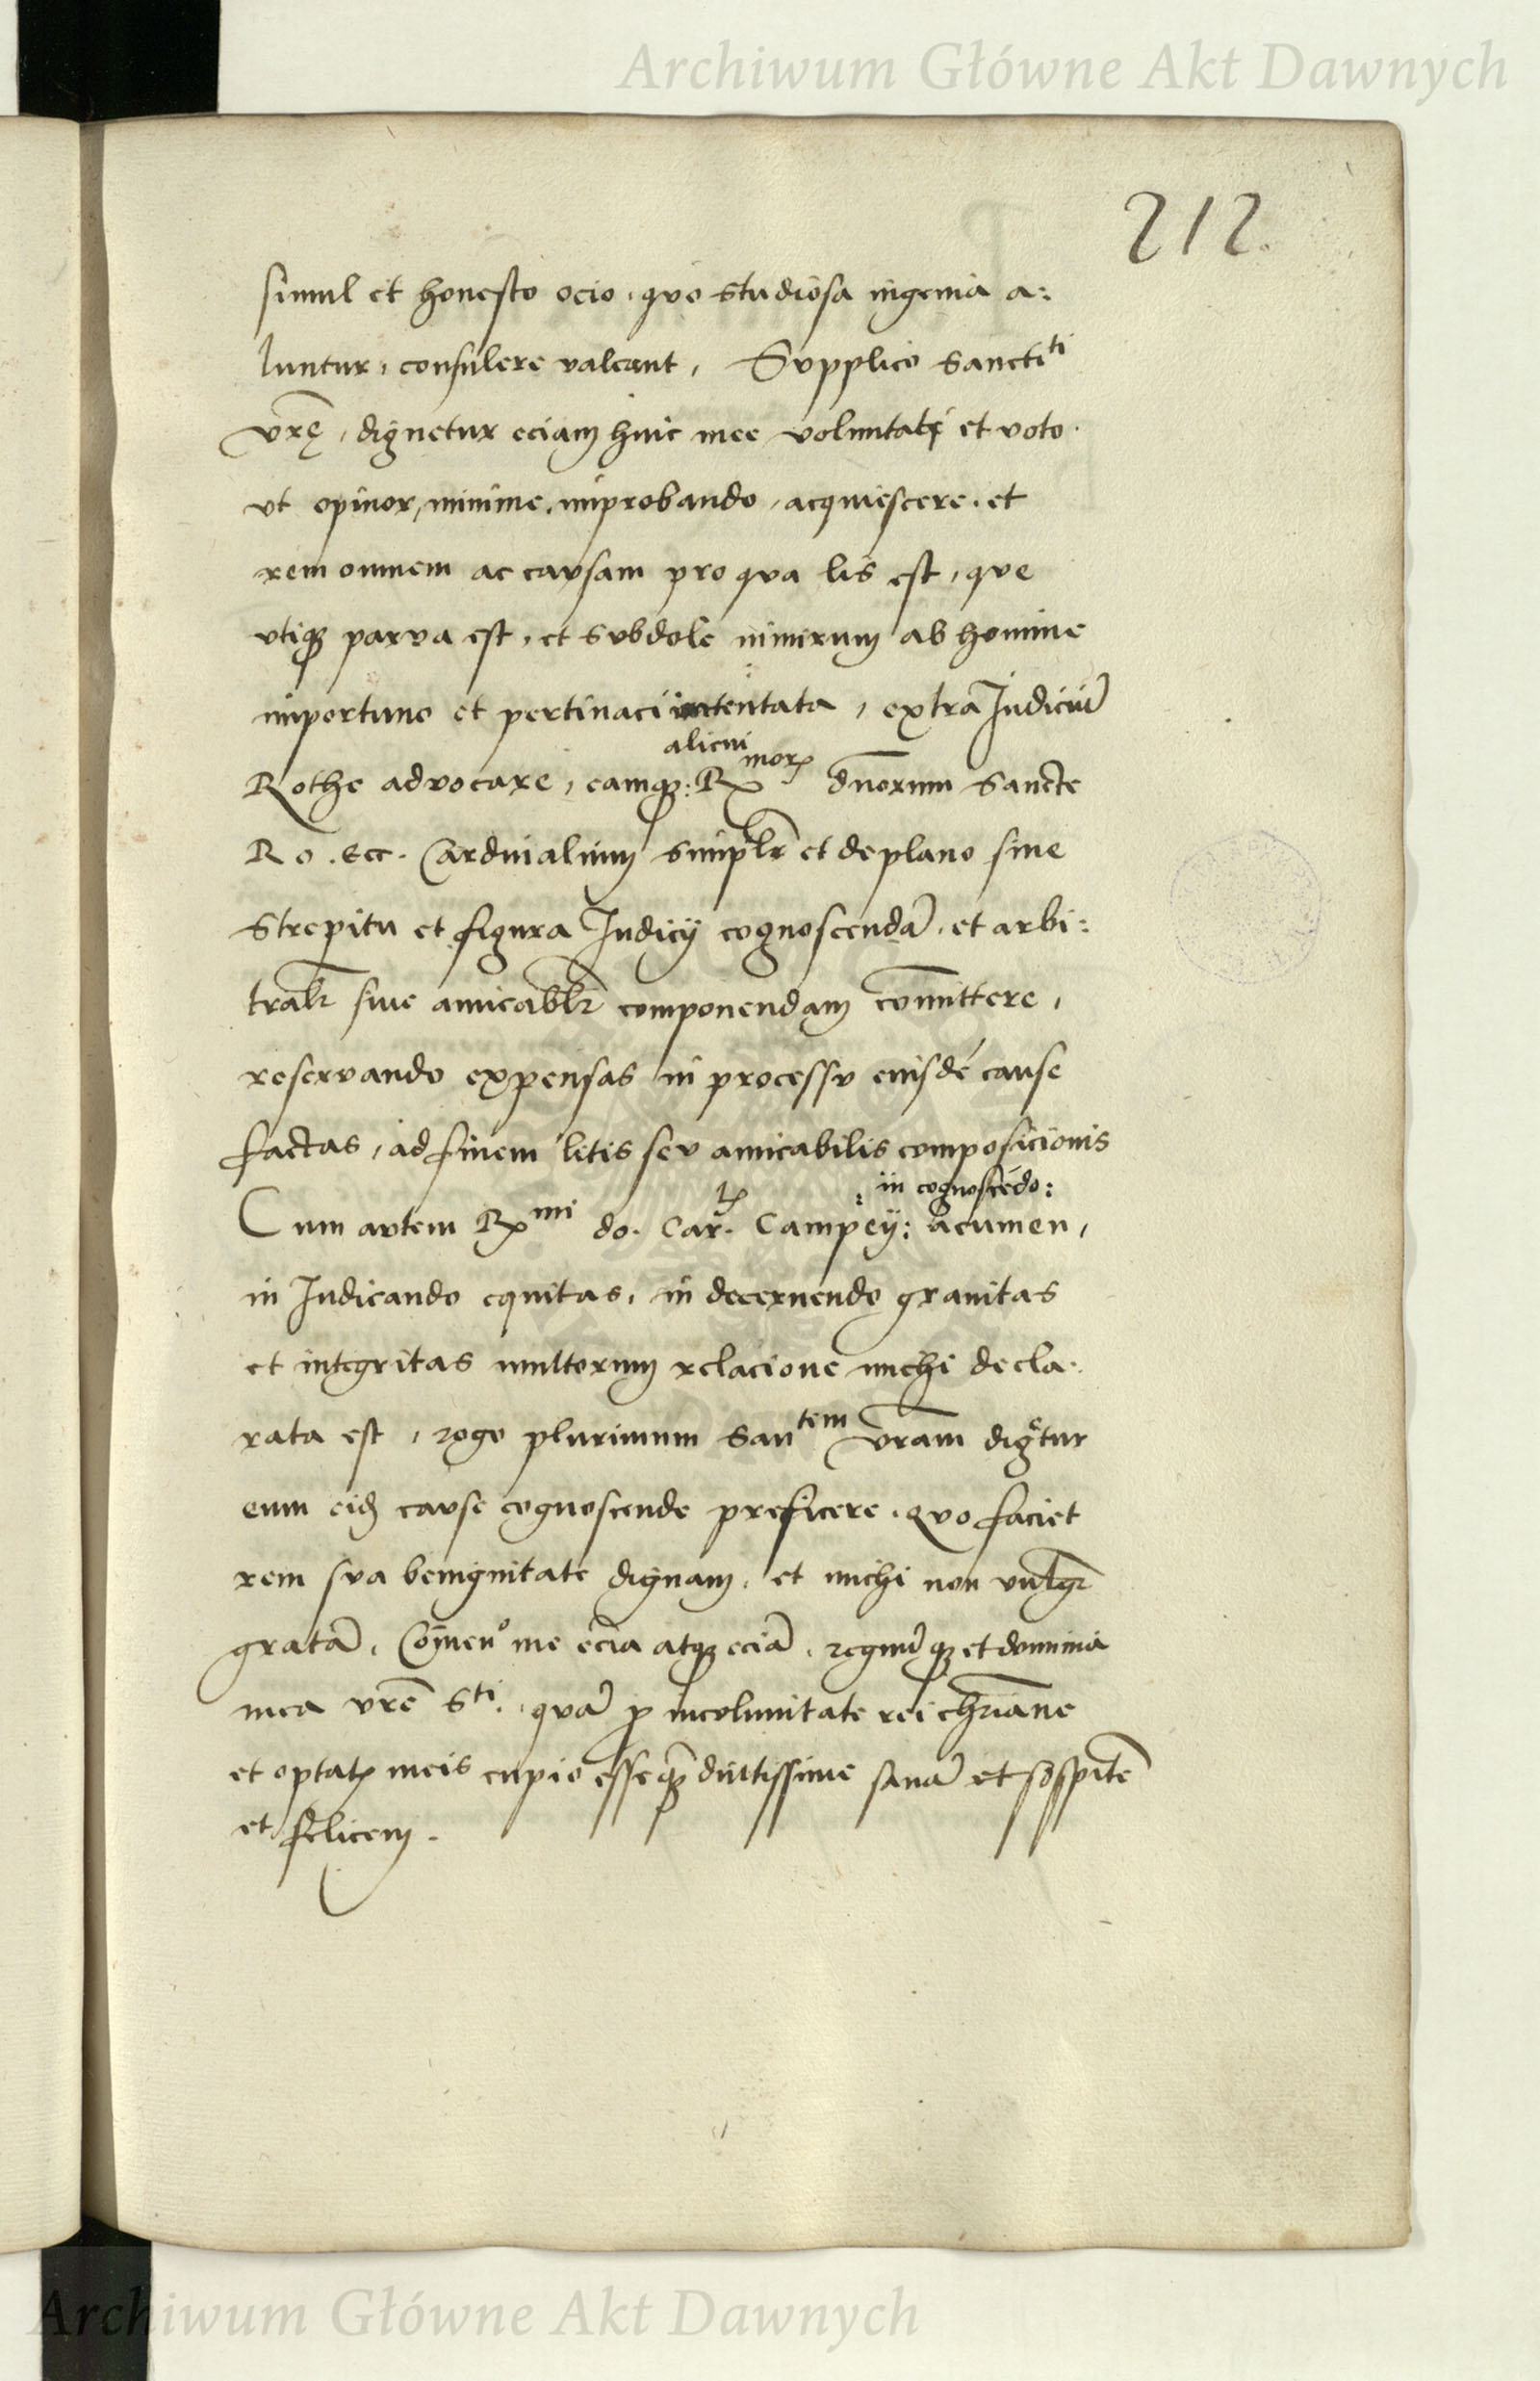 Archiwum Główne Akt Dawnych
212.
simul et honesto ocio, quo studiosa ingenia a:
luntur, consulere valeant, Supplico Sanctiti
vrę, dignetur eciam huic mee voluntati et voto
vt opinor, minime, improbando, acquiescere, et
rem omnem ac causam pro qua lis est, que
vtiqꝫ parva est, et subdole nimirum ab homine
importuno et pertinaci intentata, extra Judiciū
alicui
Rothe advocare, eamqꝫ: Rmorꝫ dnorum Sancte
Ro. Ecc. Cardinalium simplr et de plano sine
strepitu et figura Judicij cognoscendā, et arbi:
tralr sive amicablr componendam cōmittere,
reservando expensas in processu eiusdē cause
factas, ad finem litis seu amicabilis composicionis
: in cognoscēdo:
Cum autem Rmi do. Car. Campey: acumen,
in Judicando equitas, in decernendo gravitas
et integritas multorum relacione michi decla:
rata est, rogo plurimum Santem vram digētur
eum eidꝫ cause cognoscende preficere, quo faciet
rem sua benignitate dignam, et michi non vulgr
gratā, Cōmendo me eciā atqꝫ eciā, regnūqꝫ et dominia
mea vrē Sti. quā ꝓ incolumitate rei chriane
et optatis meis cupio esse qꝫ diutissime sanā et sospitē
et felicem.
Archiwum Główne Akt Dawnych